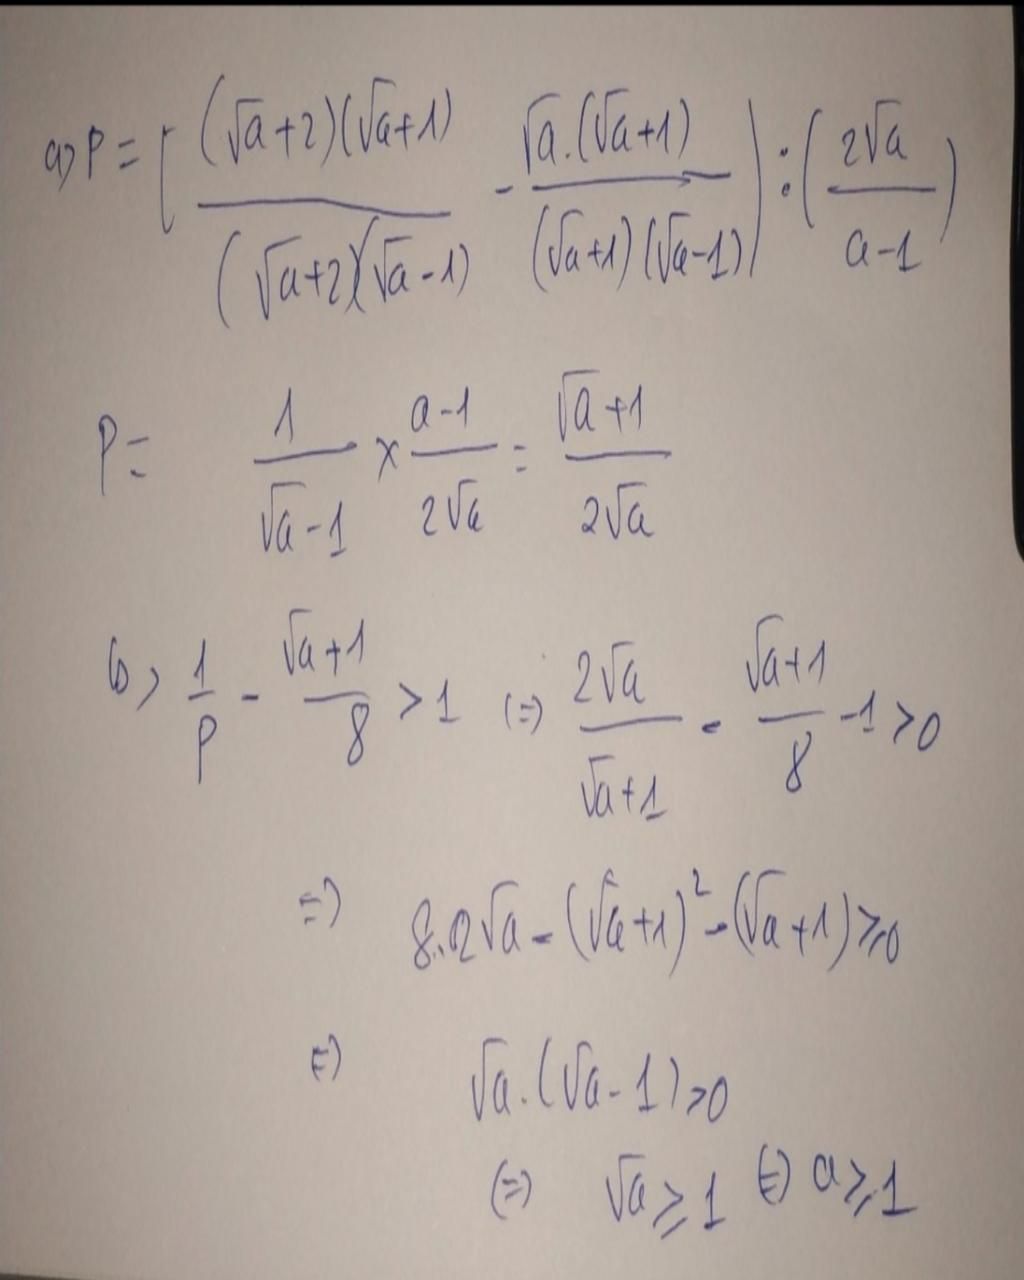 a) P = [ (√a+2)(√a+1) / (√a+2)(√a-1) - √a.(√a+1) / (√a+1)(√a-1) ] : ( 2√a / a-1 )
P = 1 / √a-1 × a-1 / 2√a = √a+1 / 2√a
b) 1/P - √a+1 / 8 > 1 (=) 2√a / √a+1 - √a+1 / 8 - 1 > 0
=) 8.2√a - (√a+1)² - (√a+1) ≥ 0
(=) √a.(√a-1) > 0
(=) √a ≥ 1 (=) a ≥ 1